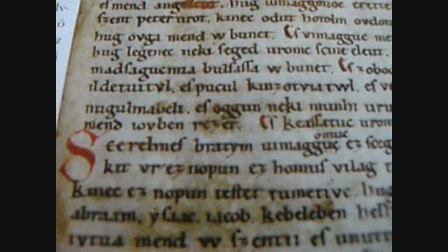 es mend angelcut. hug uimaggonoc erette
szent peter urot. kinec odut hotolm ovdon
hug ovga mend w bunet. Es uimagguc me
hug legenec neki seged uromc scine eleut.
madsagucmia bulsassa w bunet. Es zobo
ildetuitul. es pucul kinzotviatwl. es ve
nugulmabeli. es oggun neki munhi uru
mend iovben rezet. Es keassatuc urom
Scerelmes bratym uimagguc ez sceg
omuc
kit vr ez nopun ez homus vilag t
kinec ez nopun testet tumetivc. hug
abraam. ysaac. iacob. kebeleben hel
ivtva mend w szentii es unutt